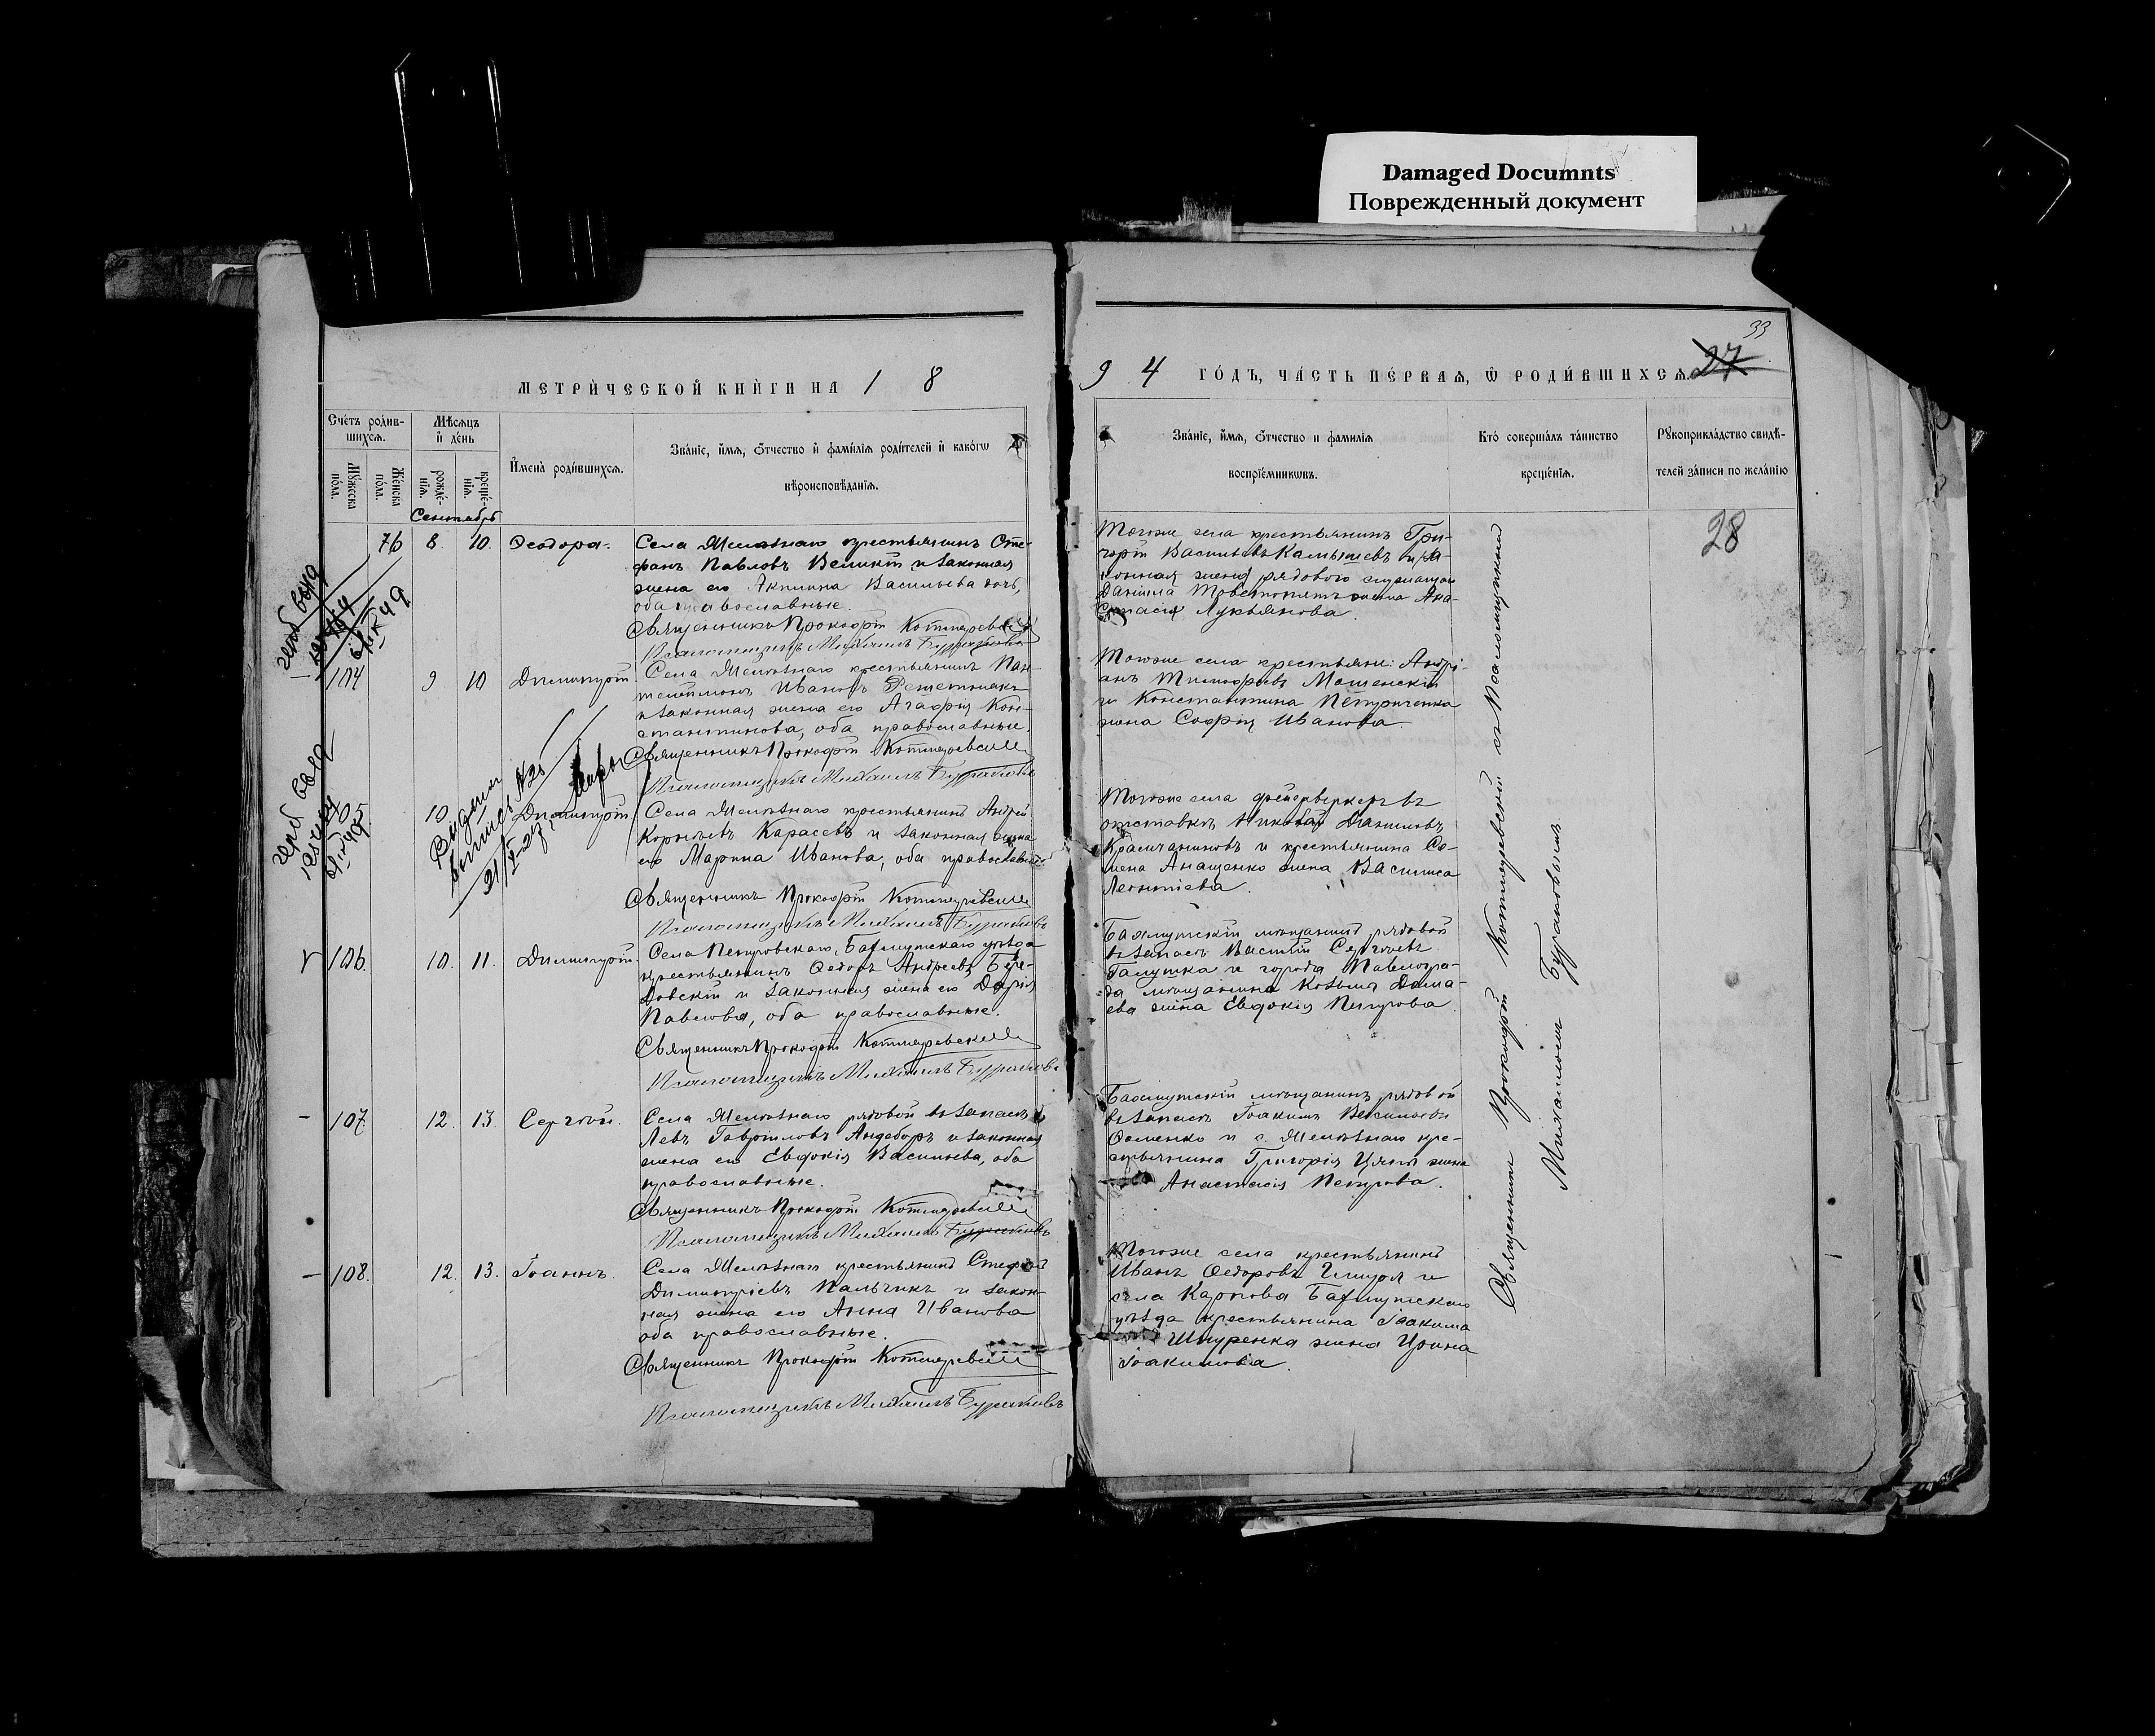 Damaged Documnts
Поврежденный документ
33
27
МЕТРИ́ЧЕСКОЙ КНИ́ГИ НА 1 8
9 4 ГО́ДЪ, ЧА́СТЬ ПЕ́РВАЯ, Ѿ РОДИ́ВШИХСЯ.
Сче́тъ роди́в-
шихся.
Мꙋ́жеска
по́ла.
Же́нска
по́ла.
Мѣ́сяцъ
и҆ де́нь
рожде́-
нїя.
креще́-
нїя.
И҆мена̀ роди́вшихся.
Зва́нїе, и҆́мя, ѻ҆́тчество и҆ фами́лїя роди́телей и҆ како́гѡ
вѣроисповѣ́данїя.
Зва́нїе, и҆́мя, ѻ҆́тчество и фами́лїя
воспрїе́мникѡвъ.
Кто̀ соверша́лъ та́инство
креще́нїя.
Рꙋкоприкла́дство свидѣ́-
телей за́писи по жела́нїю
Сентябрь
76 8. 10. Ѳеодора.
Села Желѣзнаго крестьянинъ Сте-
фанъ Павловъ Великій и законная
жена его Акилина Васильева дочь,
оба православные.
Священникъ Прокофій Котляревскій
Псаломщикъ Михаилъ Бураковъ
Тогоже села крестьянинъ Гри-
горій Васильевъ Камышевъ и за-
конная жена рядового
Даніила жена Ана-
стасія Лукьянова.
28
104 9 10 Димитрій
Села Желѣзнаго крестьянинъ Пан-
телеймонъ Ивановъ Решетнякъ
и законная жена его Агафія Кон-
стантинова, оба православные.
Священникъ Прокофій Котляревскій
Псаломщикъ Михаилъ Бураковъ
Тогоже села крестьяне: Андрі-
анъ Тимофѣевъ Мошенскій
и Константина Петриченка
жена Софія Иванова.
105. 10 Димитрій
Выдана
выпись №26
Села Желѣзнаго крестьянинъ Андрей
Корнѣевъ Карасевъ и законная жена
его Марина Иванова, оба православные
Священникъ Прокофій Котляревскій
Псаломщикъ Михаилъ Бураковъ
Тогоже села фейерверкеръ въ
отставкѣ Николай Даниловъ
и крестьянина Се-
мена Анащенко жена Василиса
Леонтіева.
106. 10. 11. Димитрій
Села Петровскаго, Бахмутскаго уѣзда
крестьянинъ Ѳедоръ Андреевъ Бере-
довскій и законная жена его Дарія
Павлова, оба православные.
Священникъ Прокофій Котляревскій
Псаломщикъ Михаилъ Бураковъ
Бахмутскій мѣщанинъ рядовой
въ запасѣ Василій Сергѣевъ
Галушка и города Павлогра-
да мѣщанина Козьмы Дама-
ева жена Евдокія Петрова
107. 12. 13. Сергѣй.
Села Желѣзнаго рядовой въ запасѣ
Левъ Гавріиловъ Андоборъ и законная
жена его Евдокія Васильева, оба
православные.
Священникъ Прокофій Котляревскій
Псаломщикъ Михаилъ Бураковъ
Бахмутскій мѣщанинъ рядовой
въ запасѣ Іоакимъ Васильевъ
Ѳоменко и с. Желѣзнаго кре-
стьянина Григорія жена
Анастасія Петрова.
108. 12. 13. Іоаннъ.
Села Желѣзнаго крестьянинъ Стефанъ
Димитріевъ Пальчикъ и закон-
ная жена его Анна Иванова
оба православные.
Священникъ Прокофій Котляревскій
Псаломщикъ Михаилъ Бураковъ
Тогоже села крестьянинъ
Иванъ Ѳедоровъ и
села Карпова Бахмутскаго
уѣзда крестьянина Іоакима
Шпуренка жена Ирина
Іоакимова.
Священникъ Прокофій Котляревскій съ Псаломщикомъ
Михаиломъ Бураковымъ.